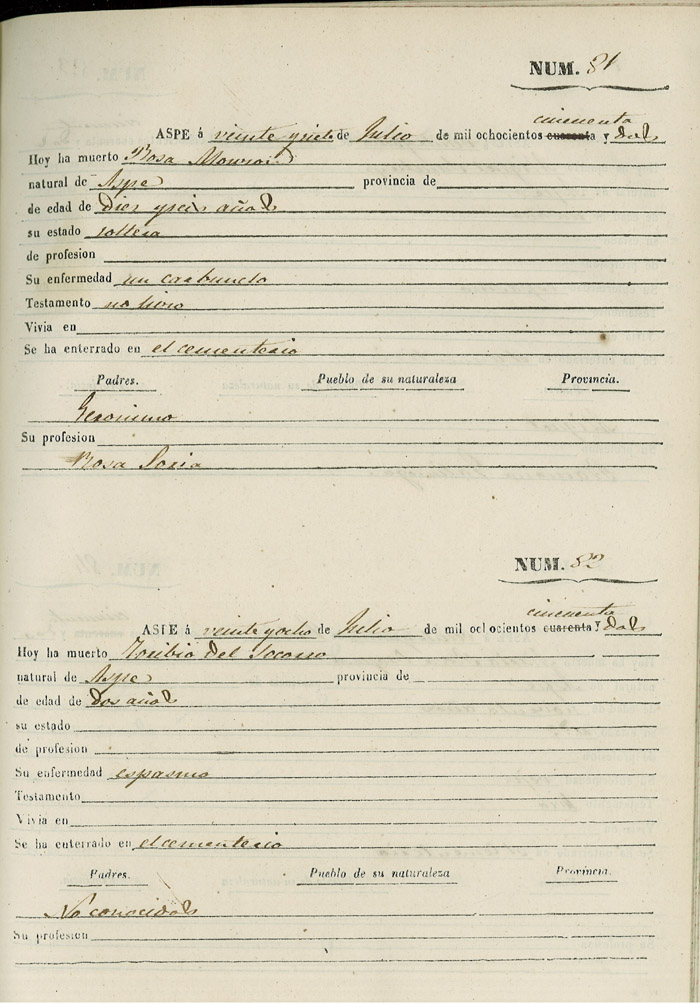 NUM. 81
cincuenta
ASPE á veinte y siete de Julio de mil ochocientos cuarenta y dos
Hoy ha muerto Rosa
natural de Aspe provincia de
de edad de diez y seis años
su estado soltera
de profesion
Su enfermedad un carbunclo
Testamento no hizo
Vivia en
Se ha enterrado en el cementerio
Padres. Pueblo de su naturaleza Provincia.
Geronimo
Su profesion
Rosa Soria
NUM. 82
cincuenta
ASPE á veinte y ocho de Julio de mil ochocientos cuarenta y dos
Hoy ha muerto Toribio del Socorro
natural de Aspe provincia de
de edad de dos años
su estado
de profesion
Su enfermedad espasmo
Testamento
Vivia en
Se ha enterrado en el cementerio
Padres. Pueblo de su naturaleza Provincia.
No conocidos
Su profesion